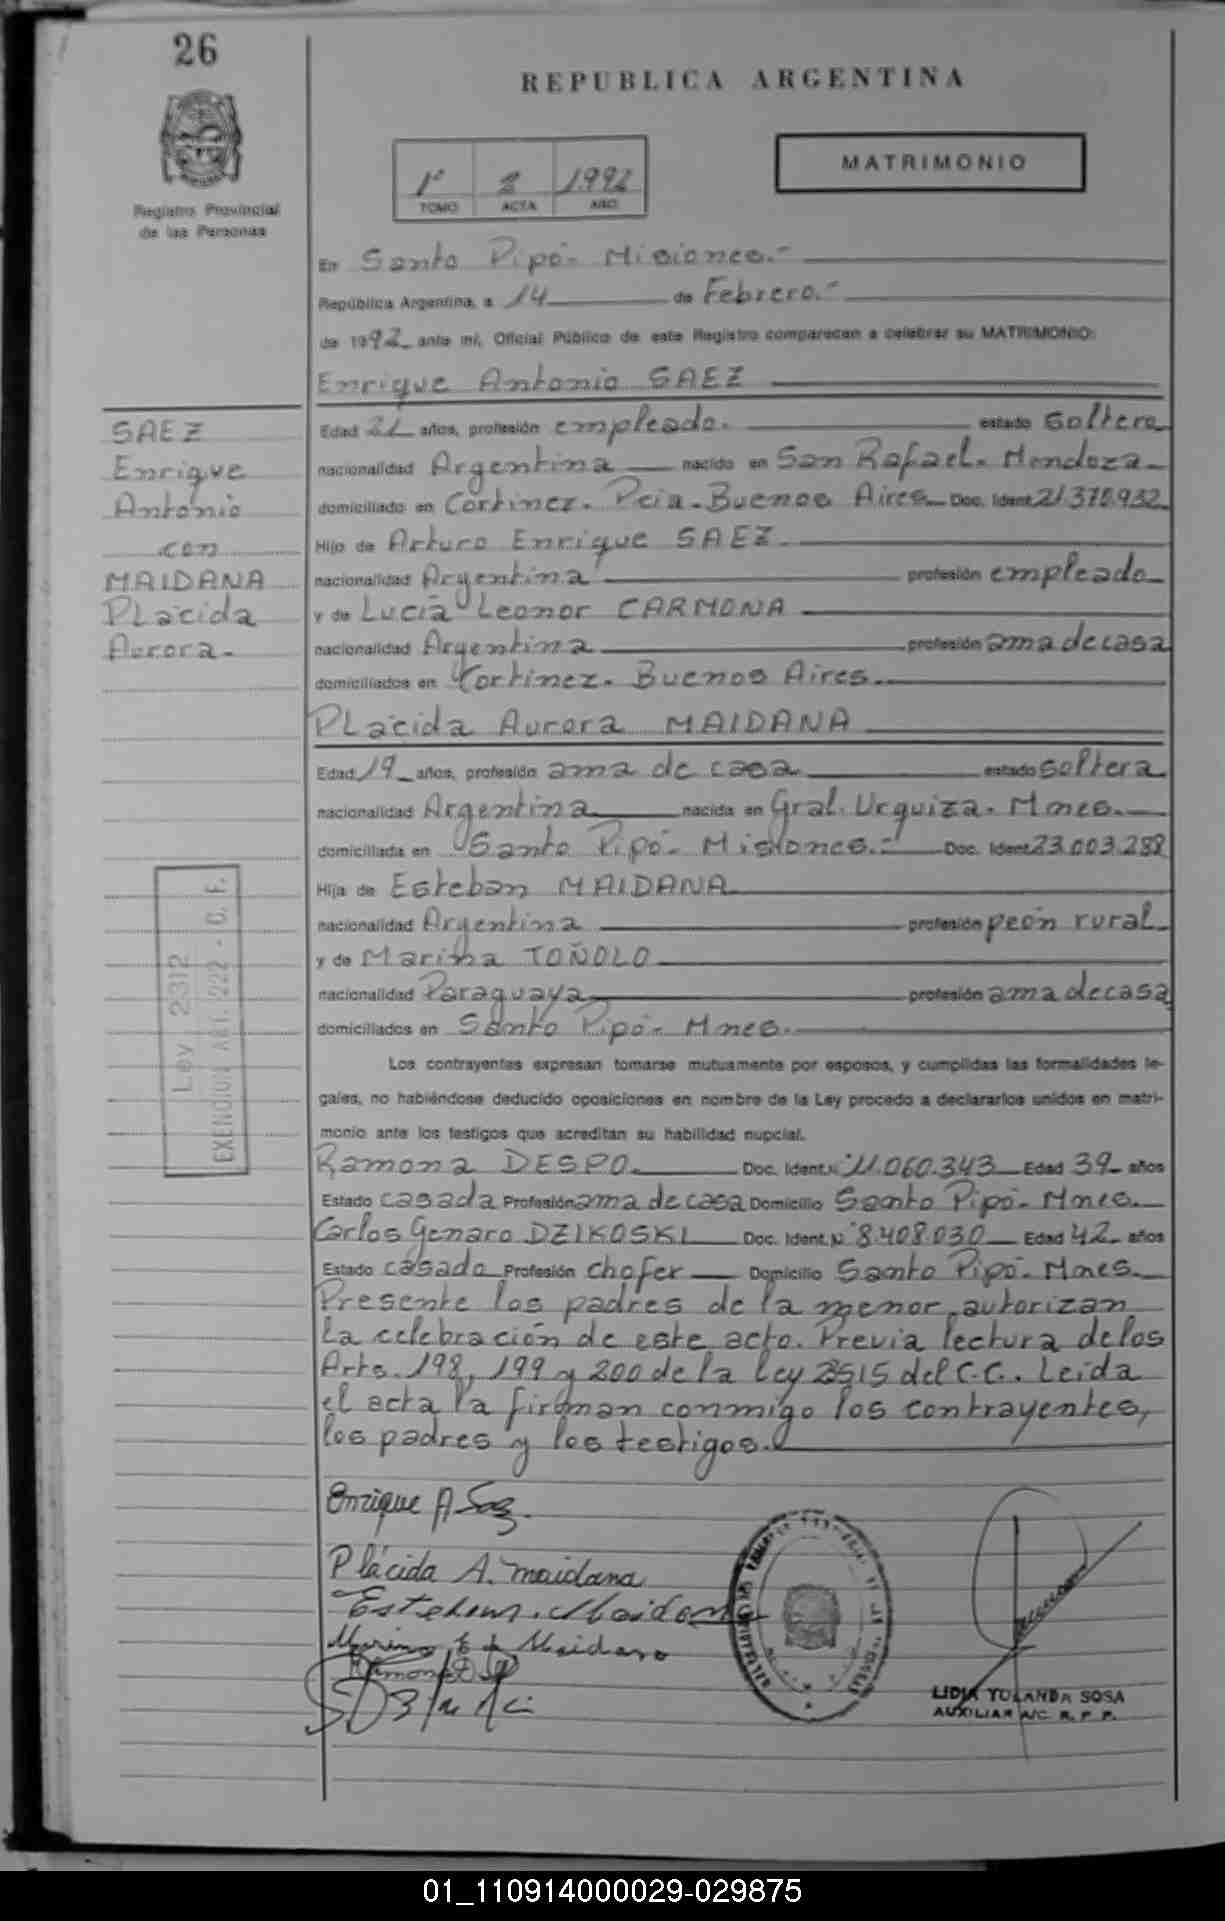 26
REPUBLICA ARGENTINA
Registro Provincial
de las Personas
1º 2 1992
TOMO ACTA AÑO
MATRIMONIO
En Santo Pipó- Misiones.-
República Argentina, a 14 de Febrero.-
de 1992 ante mí, Oficial Público de este Registro comparecen a celebrar su MATRIMONIO:
Enrique Antonio SAEZ
SAEZ
Enrique
Antonio
con
MAIDANA
PLácida
Aurora.-
Edad 21 años, profesión empleado. estado soltero
nacionalidad Argentina nacido en San Rafael. Mendoza
domiciliado en Cortinez. Pcia. Buenos Aires Doc. Ident. 21.370.932
Hijo de Arturo Enrique SAEZ
nacionalidad Argentina profesión empleado
y de Lucía Leonor CARMONA
nacionalidad Argentina profesión ama de casa
domiciliados en Cortinez. Buenos Aires
PLácida Aurora MAIDANA
Edad 19 años, profesión ama de casa estado soltera
nacionalidad Argentina nacida en Gral. Urquiza. Mnes.
domiciliada en Santo Pipó- Misiones.- Doc. Ident. 23.003.288
Hija de Esteban MAIDANA
nacionalidad Argentina profesión peón rural
y de Marina TOÑOLO
nacionalidad Paraguaya profesión ama de casa
domiciliados en Santo Pipó- Mnes.
Ley 2312
EXENCION ART. 222 - C. F.
Los contrayentes expresan tomarse mutuamente por esposos, y cumplidas las formalidades le-
gales, no habiéndose deducido oposiciones en nombre de la Ley procedo a declararlos unidos en matri-
monio ante los testigos que acreditan su habilidad nupcial.
Ramona DESPO. Doc. Ident. Nº 11.060.343 Edad 39 años
Estado casada Profesión ama de casa Domicilio Santo Pipó- Mnes.
Carlos Genaro DZIKOSKI Doc. Ident. Nº 8.408.030 Edad 42 años
Estado casado Profesión chofer Domicilio Santo Pipó- Mnes.
Presente los padres de la menor, autorizan
la celebración de este acto. Previa lectura de los
Arts. 198, 199 y 200 de la ley 2515 del C.C. Leida
el acta la firman conmigo los contrayentes,
los padres y los testigos.
Enrique A Saez
Plácida A. Maidana
Esteban Maidana
LIDIA YOLANDA SOSA
AUXILIAR A/C. R. P. P.
01_110914000029-029875